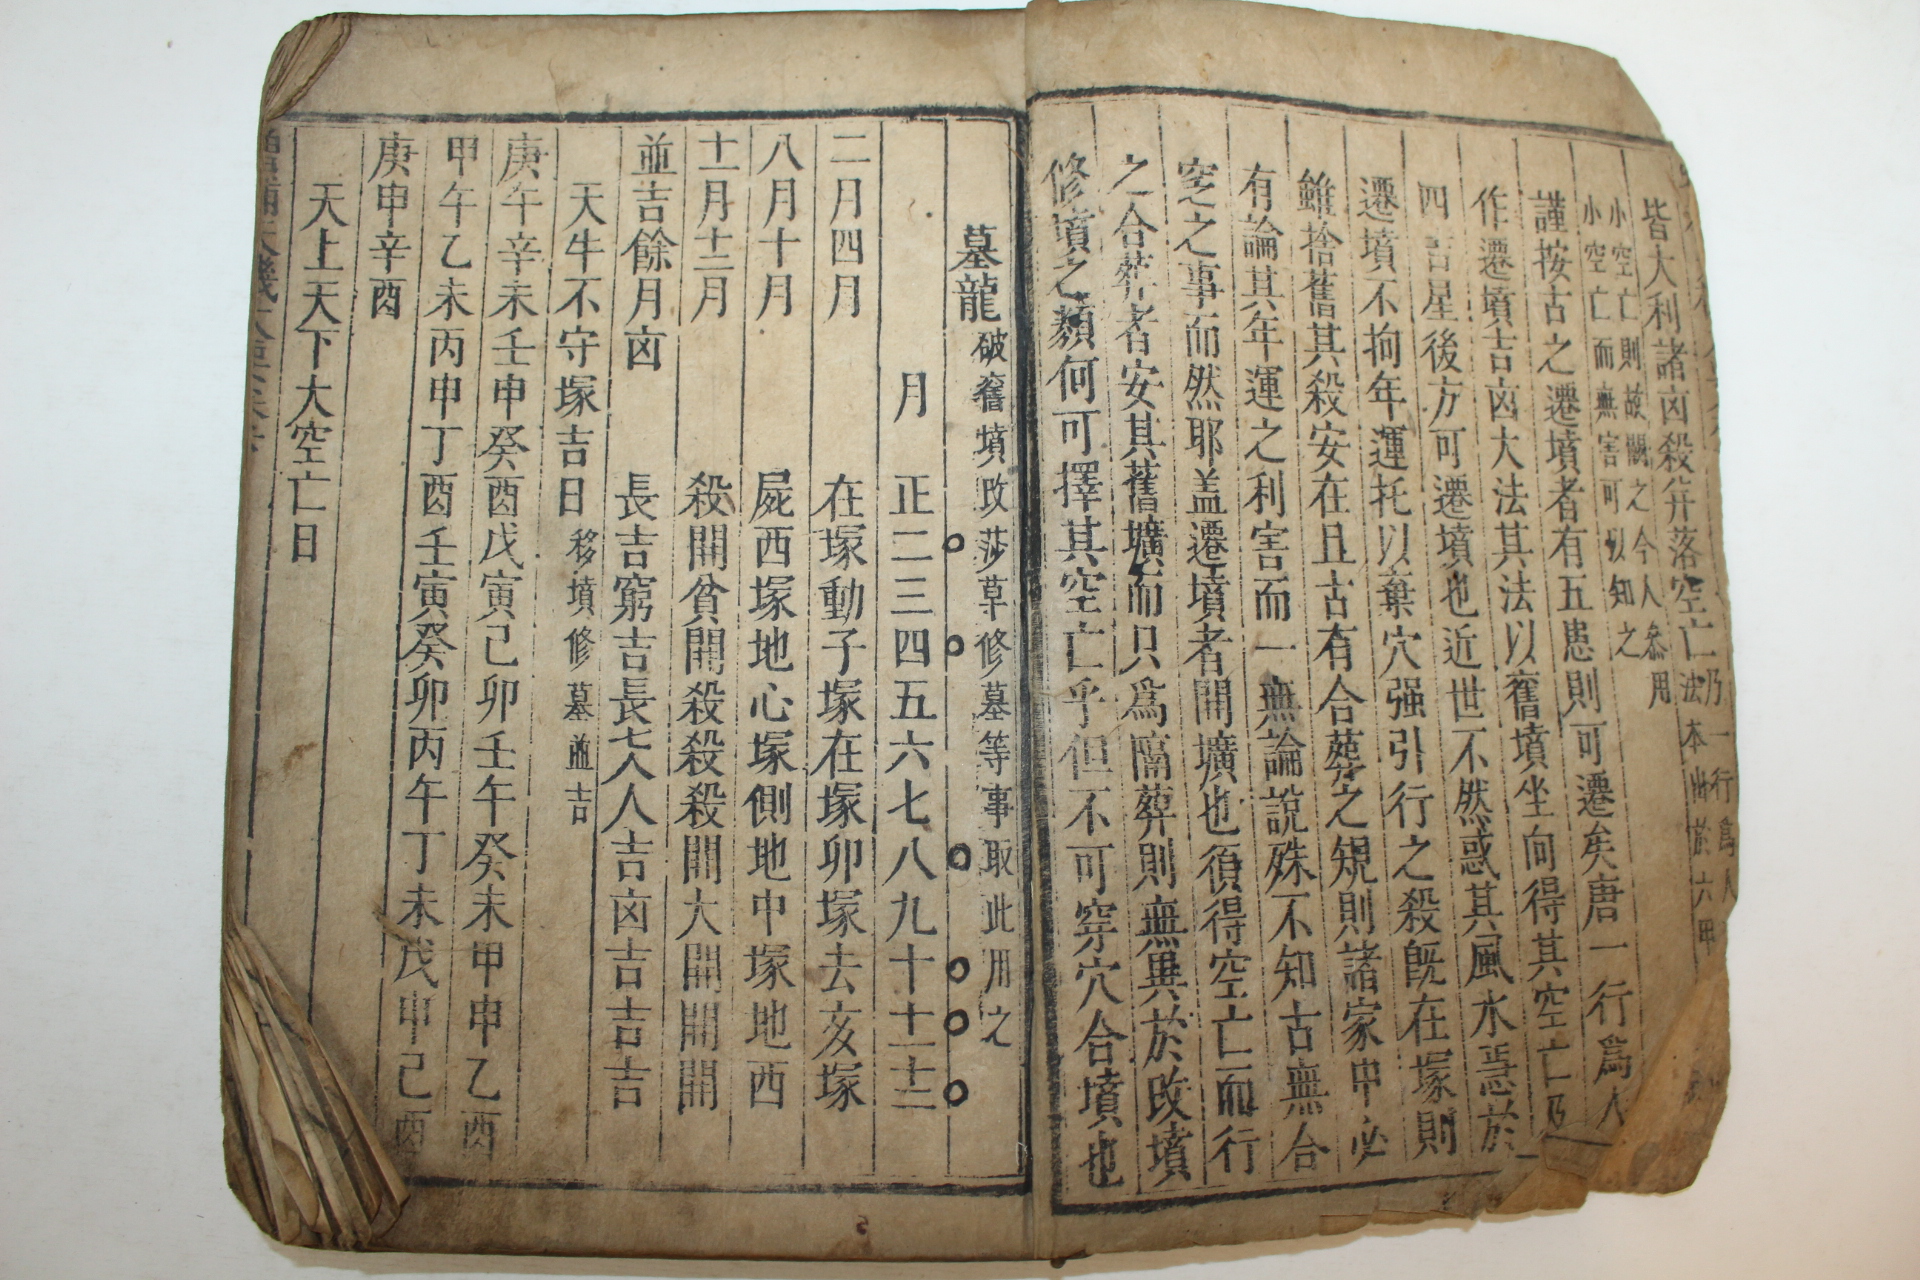 皆大利諸凶殺并落空亡乃一行爲人法本出於六甲
小空亡則故闕之今人叅用
小空亡而無害可以知之
謹按古之遷墳者有五患則可遷矣唐一行爲人
作遷墳吉凶大法其法以舊墳坐向得其空亡乃
四吉星後方可遷墳也近世不然惑其風水焉於
遷墳不拘年運托以棄穴强引行之殺旣在塚則
雖捨舊其殺安在且古有合葬之規則諸家中必
有論其年運之利害而一無論說殊不知古無合
窆之事而然耶盖遷墳者開壙也須得空亡而行
之合葬者安其舊壙而只爲隔葬則無異於改墳
修墳之類何可擇其空亡乎但不可穿穴合墳也
墓龍破舊墳改莎草修墓等事取此用之
月 正二三四五六七八九十十一十二
二月四月 在塚動子塚在塚卯塚去亥塚
八月十月 屍西塚地心塚側地中塚地西
十一月十二月 殺開貧開殺殺殺開大開開開
並吉餘月凶 長吉窮吉長欠人吉凶吉吉吉
天牛不守塚吉日移墳修墓並吉
庚午辛未壬申癸酉戊寅己卯壬午癸未甲申乙酉
甲午乙未丙申丁酉壬寅癸卯丙午丁未戊申己酉
庚申辛酉
天上天下大空亡日